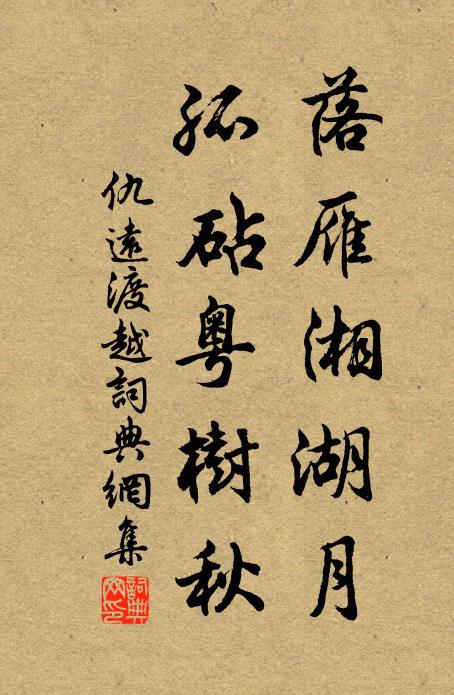 落雁湘湖月
孤砧粤樹秋
仇遠渡越詞典網集
詞典网印